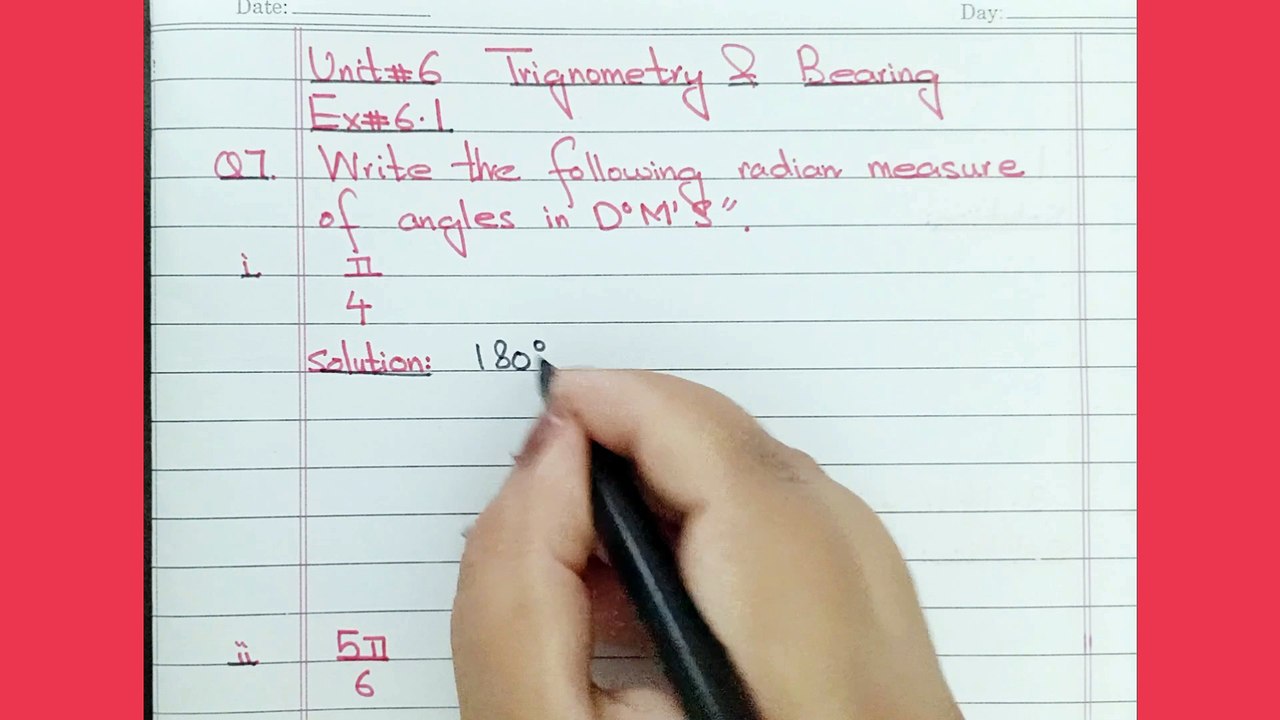 Date: Day:
Unit#6 Trignometry & Bearing
Ex#6.1
Q7. Write the following radian measure
of angles in D°M'S".
i π
4
Solution: 180°
ii 5π
6